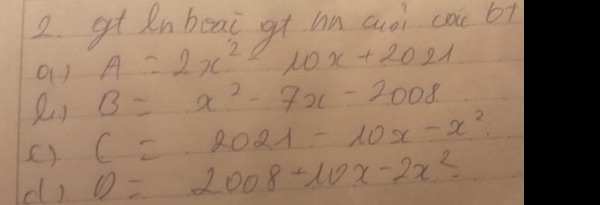 2. gt ln hoặc gt nn của các bt
a) A = 2x² - 10x + 2021
b) B = x² - 7x - 2008
c) C = 2021 - 10x - x²
d) D = 2008 + 10x - 2x²